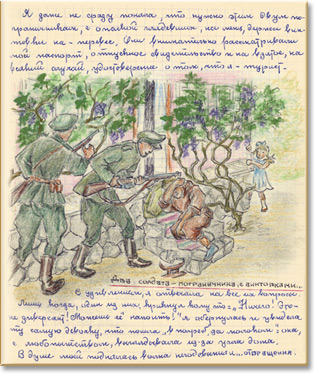 Я даже не сразу поняла, что нужно этим двум по-
граничникам, с опаской глядевших, на меня, держа вин-
товки на-перевес. Они внимательно рассматривали
мой паспорт, отпускное свидетельство и на взятое, на
всякий случай, удостоверение о том, что я - турист.
Два солдата-пограничника, с винтовками...
С удивлением, я отвечала на все их вопросы.
Лишь когда, один из них крикнул кому-то: "Ничего! Это-
не диверсант! Можешь её напоить!" я обернулась и увидела
ту самую девочку, что пошла "в погреб, за молоком": она,
с любопытством, выглядывала из-за угла дома.
В душе моей поднялась волна негодования и... отвращения.